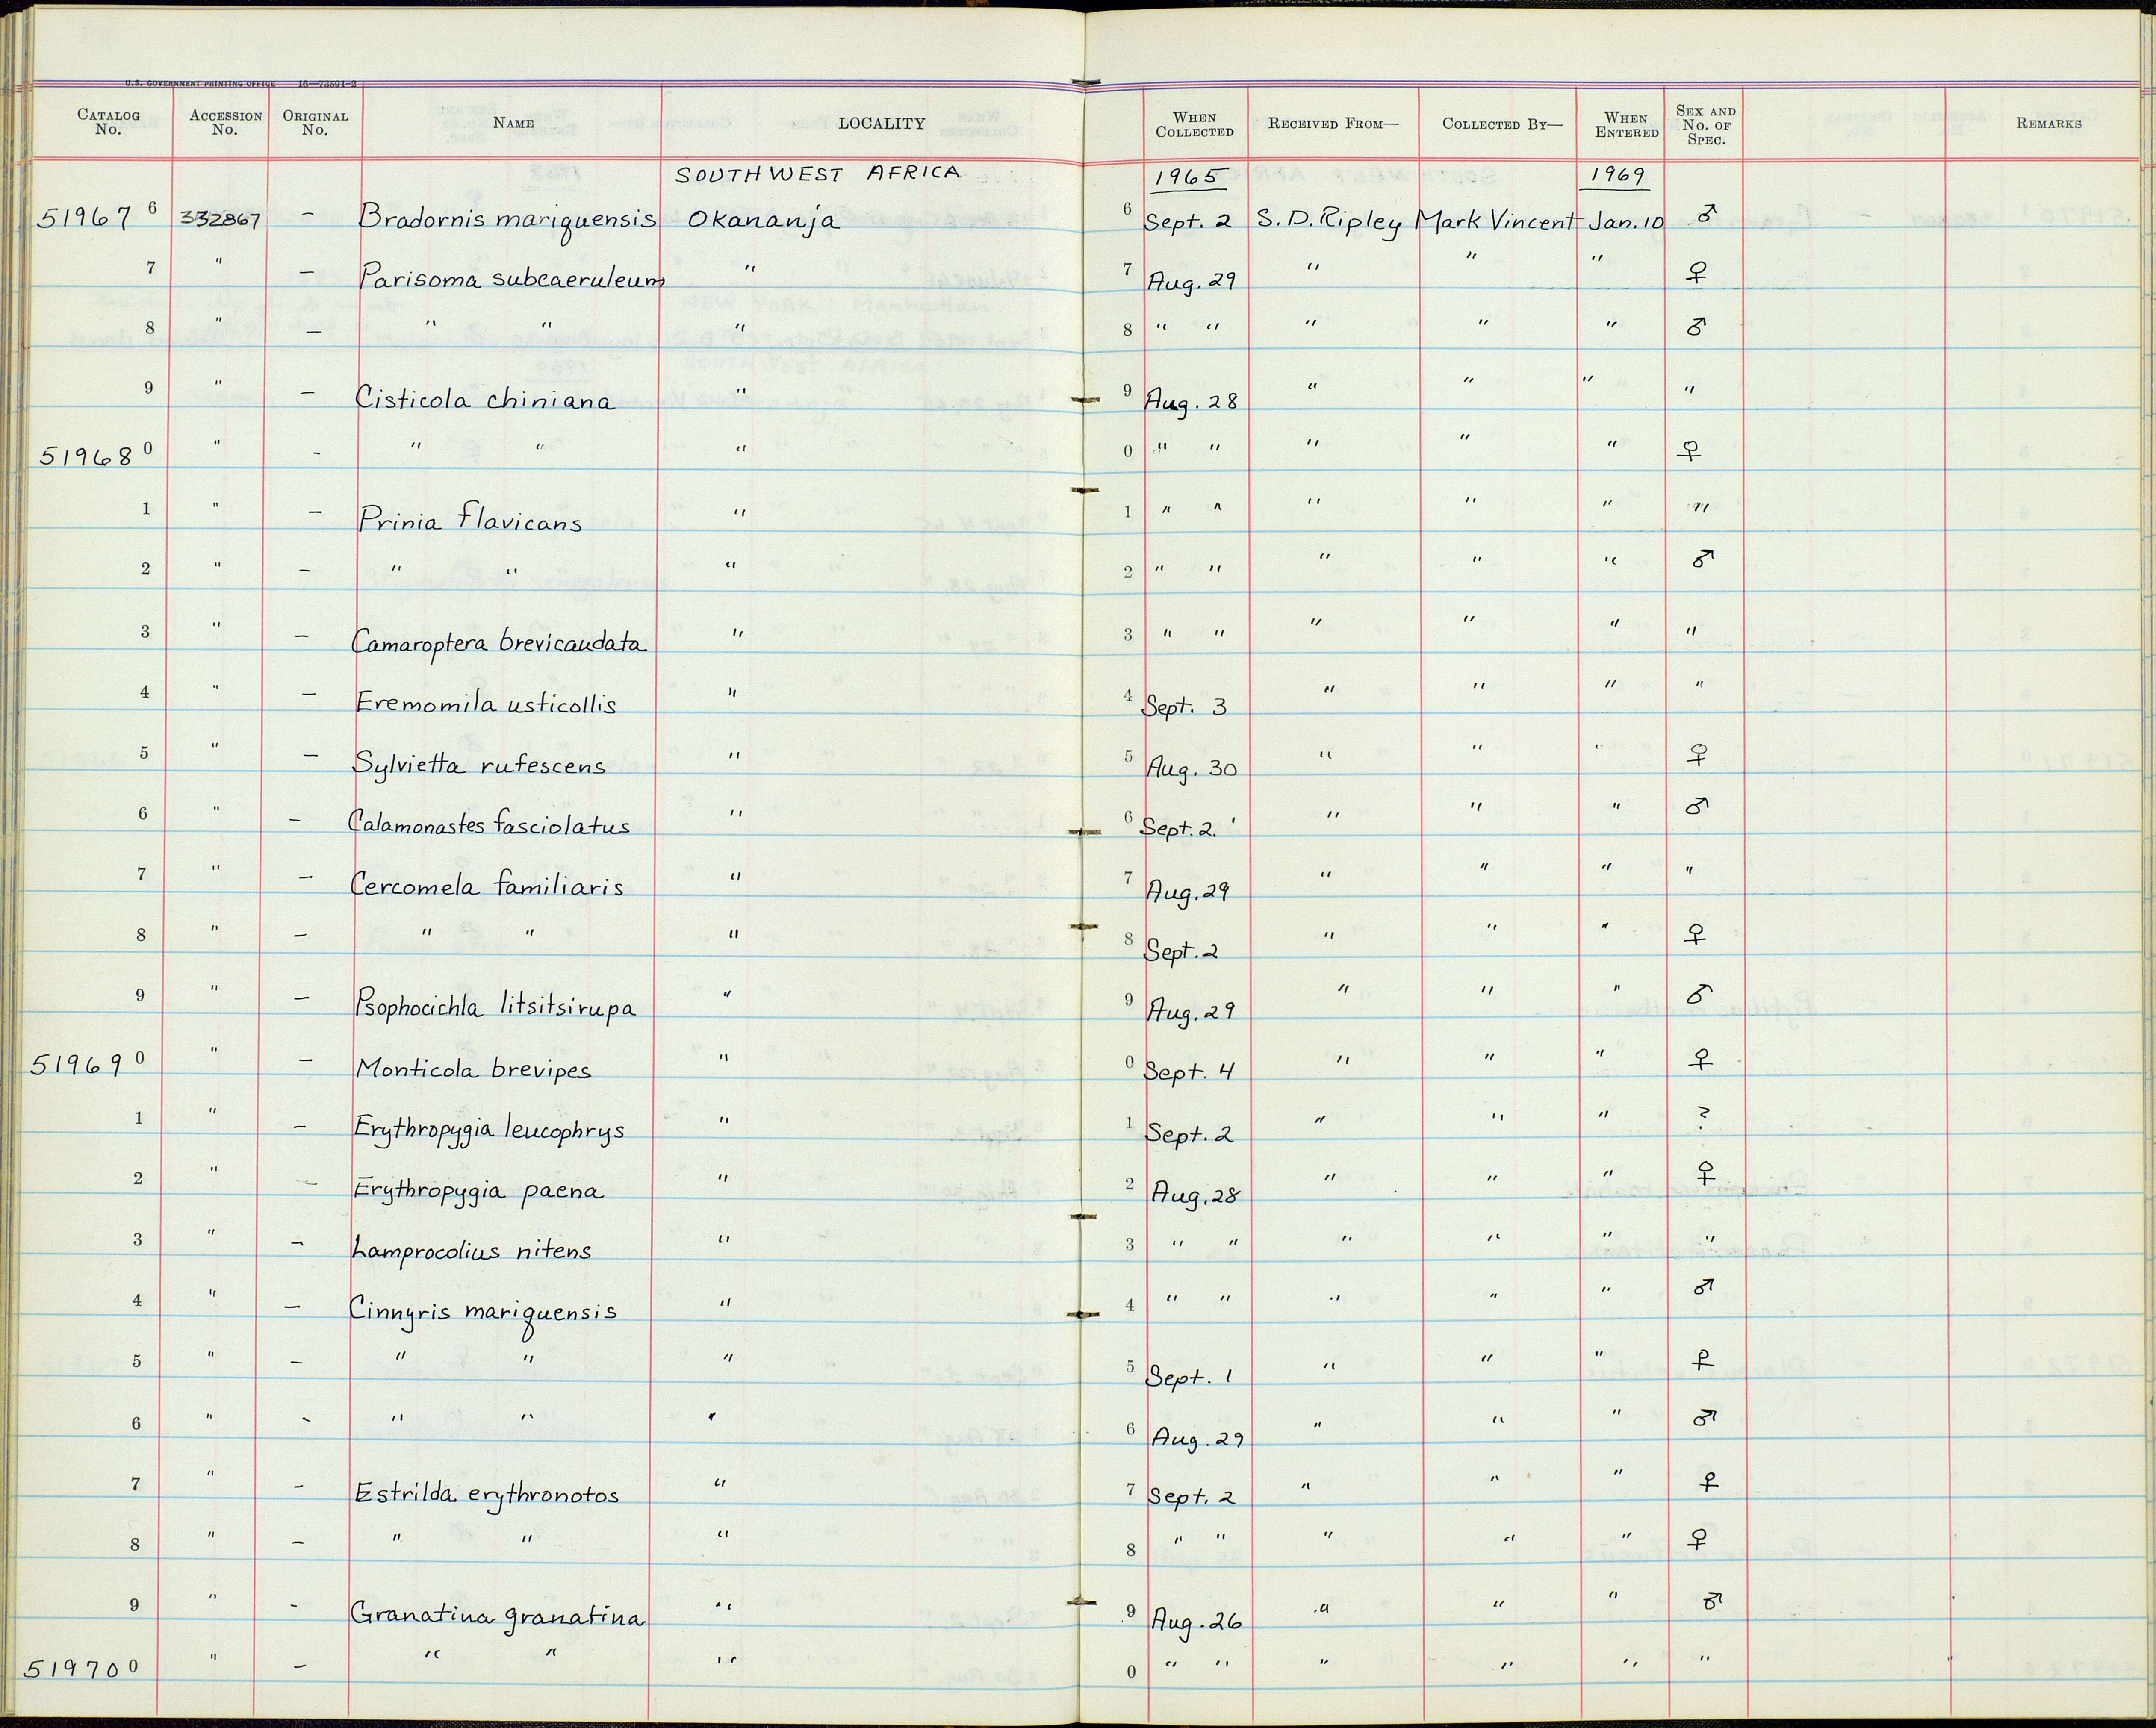 U.S. GOVERNMENT PRINTING OFFICE 16—73891-2
CATALOG No. ACCESSION No. ORIGINAL No. NAME LOCALITY WHEN COLLECTED RECEIVED FROM— COLLECTED BY— WHEN ENTERED SEX AND No. OF SPEC. REMARKS
SOUTHWEST AFRICA 1965 1969
51967 6 332867 — Bradornis mariquensis Okananja 6 Sept. 2 S. D. Ripley Mark Vincent Jan. 10 ♂
7 " — Parisoma subcaeruleum " 7 Aug. 29 " " " ♀
8 " — " " " 8 " " " " " ♂
9 " — Cisticola chiniana " 9 Aug. 28 " " " "
51968 0 " - " " " 0 " " " " " ♀
1 " — Prinia flavicans " 1 " " " " " "
2 " — " " " 2 " " " " " ♂
3 " — Camaroptera brevicaudata " 3 " " " " " "
4 " — Eremomila usticollis " 4 Sept. 3 " " " "
5 " — Sylvietta rufescens " 5 Aug. 30 " " " ♀
6 " — Calamonastes fasciolatus " 6 Sept. 2. " " " ♂
7 " — Cercomela familiaris " 7 Aug. 29 " " " "
8 " — " " " 8 Sept. 2 " " " ♀
9 " — Psophocichla litsitsirupa " 9 Aug. 29 " " " ♂
51969 0 " — Monticola brevipes " 0 Sept. 4 " " " ♀
1 " — Erythropygia leucophrys " 1 Sept. 2 " " " ?
2 " — Erythropygia paena " 2 Aug. 28 " " " ♀
3 " — Lamprocolius nitens " 3 " " " " " "
4 " — Cinnyris mariquensis " 4 " " " " " ♂
5 " — " " " 5 Sept. 1 " " " ♀
6 " - " " " 6 Aug. 29 " " " ♂
7 " - Estrilda erythronotos " 7 Sept. 2 " " " ♀
8 " — " " " 8 " " " " " ♀
9 " - Granatina granatina " 9 Aug. 26 " " " ♂
51970 0 " — " " " 0 " " " " " "